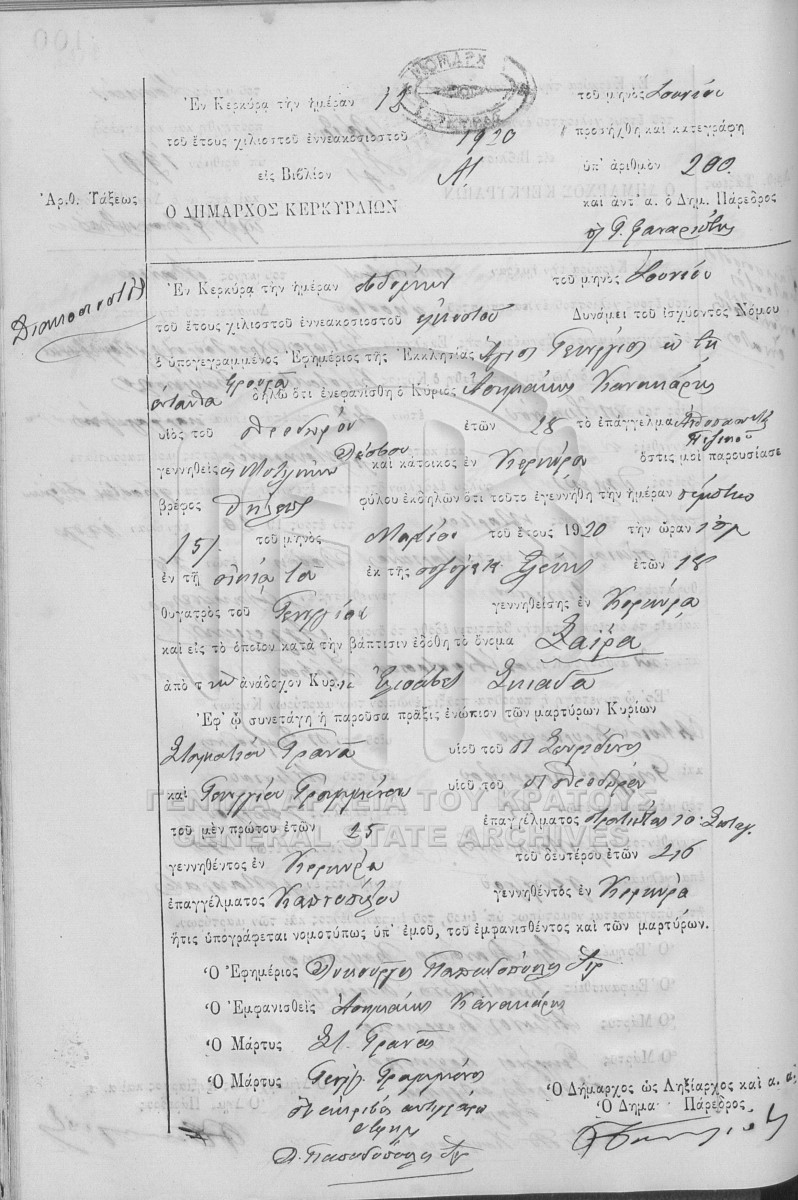 ΝΟΜΑΡΧ
ΚΕΡΚΥΡΑΣ
Ἐν Κερκύρᾳ τὴν ἡμέραν 12 τοῦ μηνὸς Ἰουνίου
τοῦ ἔτους χιλιοστοῦ ἐννεακοσιοστοῦ 1920 προσήχθη καὶ κατεγράφη
εἰς Βιβλίον Α! ὑπ' ἀριθμὸν 200.
Ἀρ.θ. Τάξεως
Ὁ ΔΗΜΑΡΧΟΣ ΚΕΡΚΥΡΑΙΩΝ καὶ ἀντ' α. ὁ Δημ. Πάρεδρος
Διακοσιοστὴ
Ἐν Κερκύρᾳ τὴν ἡμέραν ἑβδόμην τοῦ μηνὸς Ἰουνίου
τοῦ ἔτους χιλιοστοῦ ἐννεακοσιοστοῦ εἰκοστοῦ Δυνάμει τοῦ ἰσχύοντος Νόμου
ὁ ὑπογεγραμμένος Ἐφημέριος τῆς Ἐκκλησίας Ἅγιος Γεώργιος
ἐνταῦθα δηλῶ ὅτι ἐνεφανίσθη ὁ Κύριος Ἀσημάκης Κανακάρης
υἱὸς τοῦ Θεοδώρου ἐτῶν 28 τὸ ἐπάγγελμα
Πεζικοῦ
γεννηθεὶς ἐν Μυτιλήνῃ Λέσβου καὶ κάτοικος ἐν Κερκύρᾳ ὅστις μοὶ παρουσίασε
βρέφος θήλεος φύλου ἐκδηλῶν ὅτι τοῦτο ἐγεννήθη τὴν ἡμέραν πέμπτην
/5/ τοῦ μηνὸς Μαρτίου τοῦ ἔτους 1920 τὴν ὥραν 1 πμ
ἐν τῇ οἰκίᾳ του ἐκ τῆς συζύγου Ἑλένης ἐτῶν 18
θυγατρὸς τοῦ Γεωργίου γεννηθείσης ἐν Κερκύρᾳ
καὶ εἰς τὸ ὁποῖον κατὰ τὴν βάπτισιν ἐδόθη τὸ ὄνομα Ζαΐρα
ἀπὸ τὴν ἀνάδοχον Κυρίαν Ἐλισάβετ Σκιαδᾶ
Ἐφ' ᾧ συνετάγη ἡ παροῦσα πρᾶξις ἐνώπιον τῶν μαρτύρων Κυρίων
Σταματίου Γρανᾶ υἱοῦ τοῦ Σπυρίδωνος
καὶ Γεωργίου Γραμμένου υἱοῦ τοῦ Θεοδώρου
ΓΕΝΙΚΑ ΑΡΧΕΙΑ ΤΟΥ ΚΡΑΤΟΥΣ
GENERAL STATE ARCHIVES
τοῦ μὲν πρώτου ἐτῶν 25 ἐπαγγέλματος στρατιώτης 10 Συνταγ.
γεννηθέντος ἐν Κερκύρᾳ τοῦ δευτέρου ἐτῶν 26
ἐπαγγέλματος Καπνοπώλου γεννηθέντος ἐν Κερκύρᾳ
ἥτις ὑπογράφεται νομοτύπως ὑπ' ἐμοῦ, τοῦ ἐμφανισθέντος καὶ τῶν μαρτύρων.
Ὁ Ἐφημέριος Λυκοῦργος Παπαδόπουλος Ἱερ
Ὁ Ἐμφανισθεὶς Ἀσημάκης Κανακάρης
Ὁ Μάρτυς Στ. Γρανᾶς
Ὁ Μάρτυς Γεώργ. Γραμμένος
Ὁ Δήμαρχος ὡς Ληξίαρχος καὶ α. α.
Ὁ Δημ. Πάρεδρος
ἀκριβὲς ἀντίγραφο
Λ. Παπαδόπουλος Ἱερ